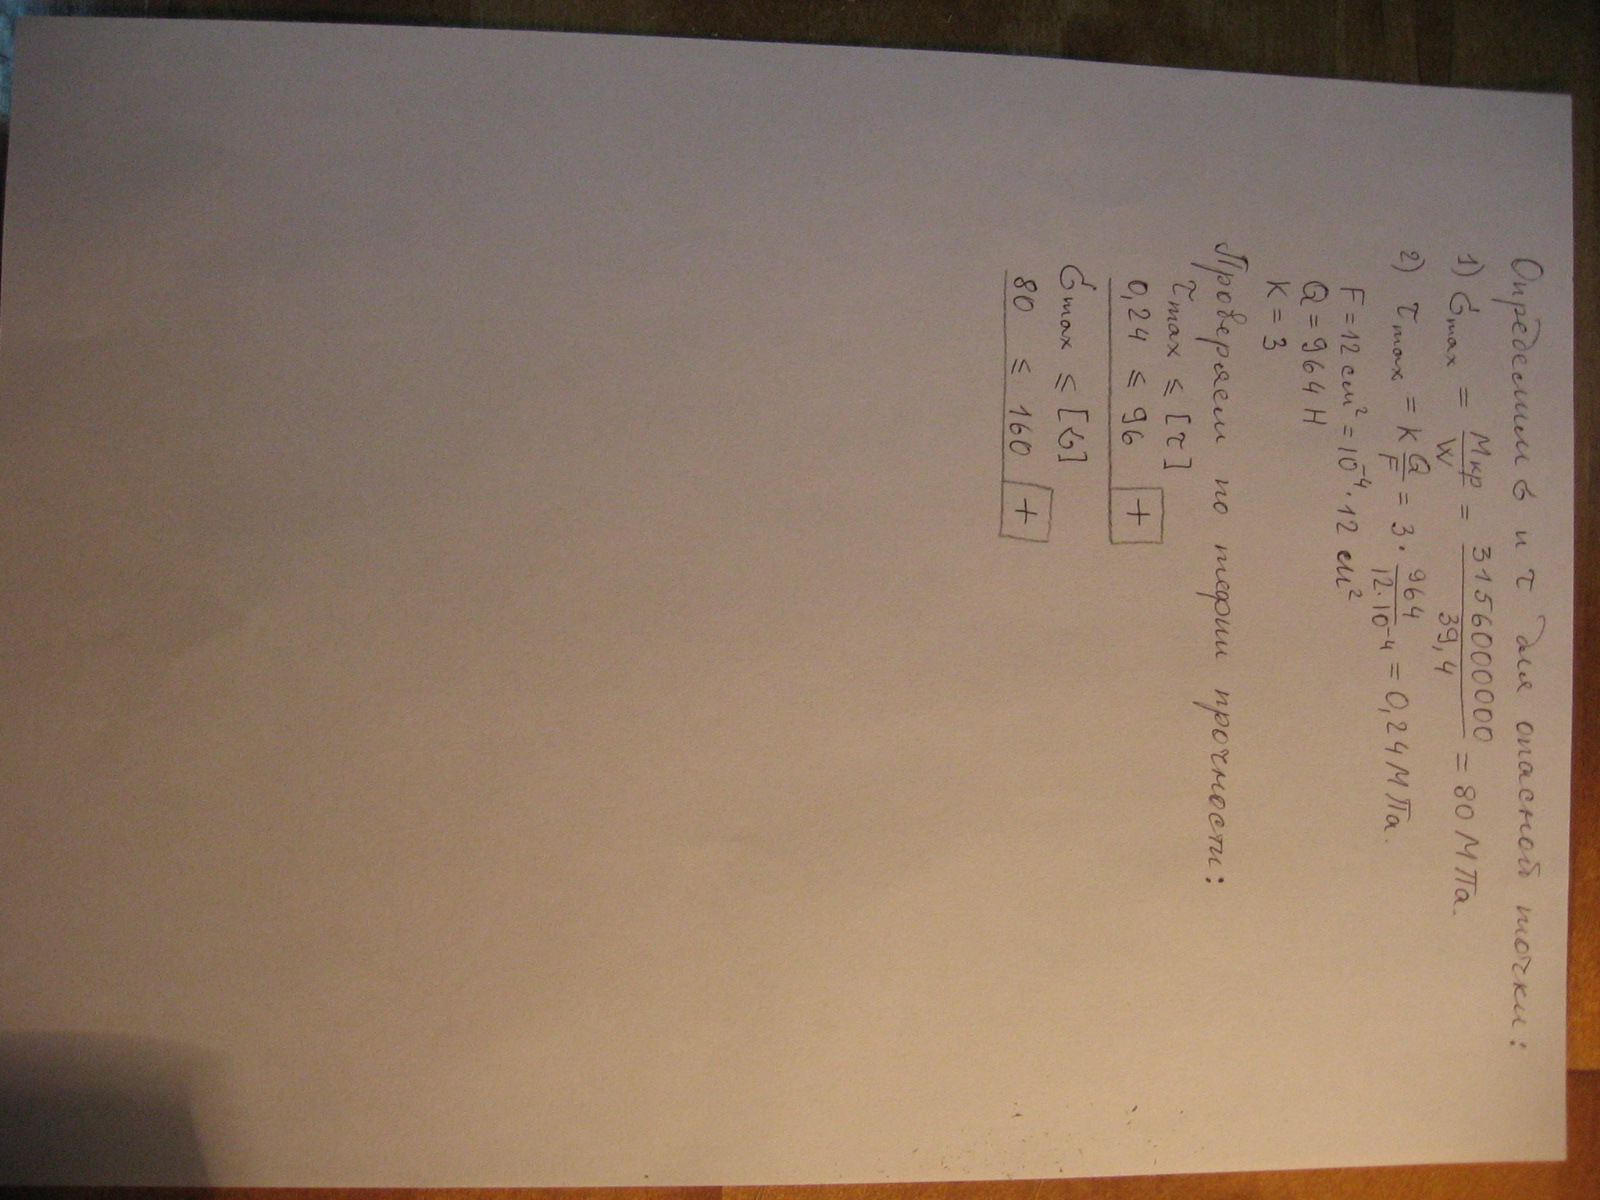 Определим σ и τ для опасной точки:
1) σmax = Mкр/W = 3156000000/39,4 = 80 МПа.
2) τmax = K Q/F = 3 · 964/12·10⁻⁴ = 0,24 МПа.
F = 12 см² = 10⁻⁴ · 12 см²
Q = 964 Н
K = 3
Проверяем по теории прочности:
τmax ≤ [τ]
0,24 ≤ 96 +
σmax ≤ [σ]
80 ≤ 160 +